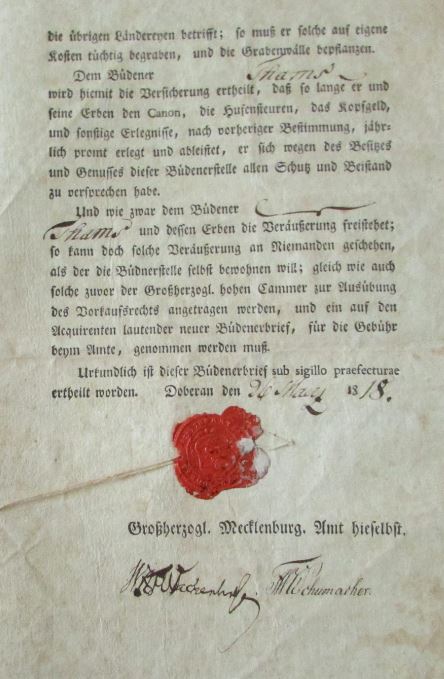 die übrigen Ländereyen betrifft; so muß er solche auf eigene
Kosten tüchtig begraben, und die Grabenwälle bepflanzen.
Dem Büdener Thams
wird hiemit die Versicherung ertheilt, daß so lange er und
seine Erben den Canon, die Hufensteuren, das Kopfgeld,
und sonstige Erlegnisse, nach vorheriger Bestimmung, jähr-
lich promt erlegt und ableistet, er sich wegen des Besitzes
und Genusses dieser Büdenerstelle allen Schutz und Beistand
zu versprechen habe.
Und wie zwar dem Büdener
Thams und dessen Erben die Veräußerung freistehet;
so kann doch solche Veräußerung an Niemanden geschehen,
als der die Büdnerstelle selbst bewohnen will; gleich wie auch
solche zuvor der Großherzogl. hohen Cammer zur Ausübung
des Vorkaufsrechts angetragen werden, und ein auf den
Acquirenten lautender neuer Büdenerbrief, für die Gebühr
beym Amte, genommen werden muß.
Urkundlich ist dieser Büdenerbrief sub sigillo praefecturae
ertheilt worden. Doberan den 26 May 1818.
Großherzogl. Mecklenburg. Amt hieselbst.
Schumacher.